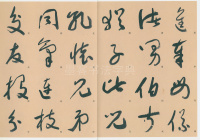 入奉母儀
諸姑伯叔
猶子比兒
孔懷兄弟
同氣連枝
交友投分